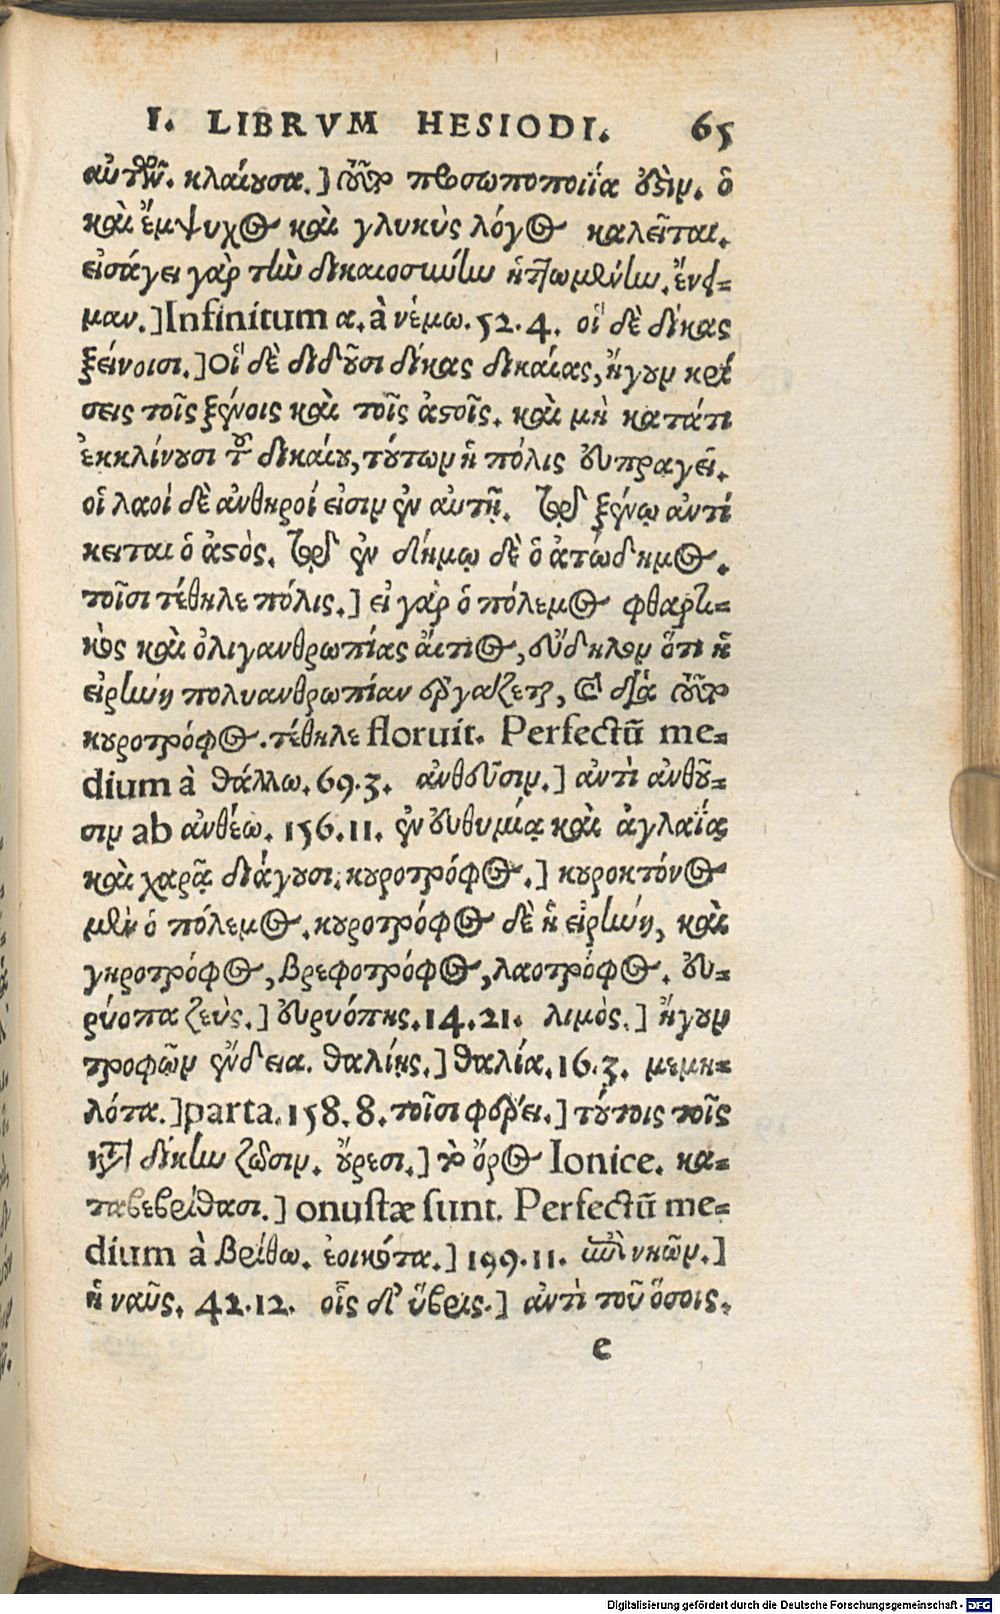 I. LIBRVM HESIODI. 65
αὐτῶν. κλαίουσα.] προσωποποιΐα ὅξιν. ὁ
καὶ ἔμψυχος καὶ γλυκὺς λόγος καλεῖται.
εἰσάγει γὰρ τὴν δικαιοσύνην ἡττωμένην. ἔνει-
μαν.] Infinitum α. à νέμω. 52.4. οἳ δὲ δίκας
ξείνοισι.] Οἳ δὲ διδοῦσι δίκας δικαίας, ἤγουν κρί
σεις τοῖς ξένοις καὶ τοῖς ἀστοῖς. καὶ μὴ κατάτι
ἐκκλίνουσι τοῦ δικαίου, τούτων ἡ πόλις εὐπραγεῖ.
οἱ λαοί δὲ ἀνθηροί εἰσιν ἐν αὐτῇ. τῷ δὲ ξένῳ ἀντί
κειται ὁ ἀστός. τῷ δὲ ἐν δήμῳ δὲ ὁ ἀπόδημος.
τοῖσι τέθηλε πόλις.] εἰ γὰρ ὁ πόλεμος φθαρτι-
κὸς καὶ ὀλιγανθρωπίας ἄιτιος, εὔδηλον ὅτι ἡ
εἰρήνη πολυανθρωπίαν ἐργάζεται, καὶ διὰ
κουροτρόφος. τέθηλε floruit. Perfectũ me-
dium à θάλλω. 69.3. ἀνθεῦσιν.] ἀντὶ ἀνθοῦ-
σιν ab ἀνθέω. 156.11. ἐν εὐθυμίᾳ καὶ ἀγλαΐᾳ
καὶ χαρᾷ διάγουσι. κουροτρόφος.] κουροκτόνος
μὲν ὁ πόλεμος. κουροτρόφος δὲ ἡ εἰρήνη, καὶ
γηροτρόφος, βρεφοτρόφος, λαοτρόφος. εὐ-
ρύοπα ζεὺς.] εὐρυόπης. 14.21. λιμὸς.] ἤγουν
τροφῶν ἔνδεια. θαλίῃς.] θαλία. 16.3. μεμη-
λότα.] parta. 158.8. τοῖσι φέρει.] τούτοις τοῖς
κατὰ δίκην ζῶσιν. οὔρεσι.] τὸ ὄρος Ionice. κα-
ταβεβρίθασι.] onustæ sunt. Perfectũ me-
dium à βρίθω. ἐοικότα.] 199.11. νηῶν.]
ἡ ναῦς. 42.12. οἷς δ’ ὕβρις.] ἀντὶ τοῦ ὅσοις.
e
Digitalisierung gefördert durch die Deutsche Forschungsgemeinschaft - DFG